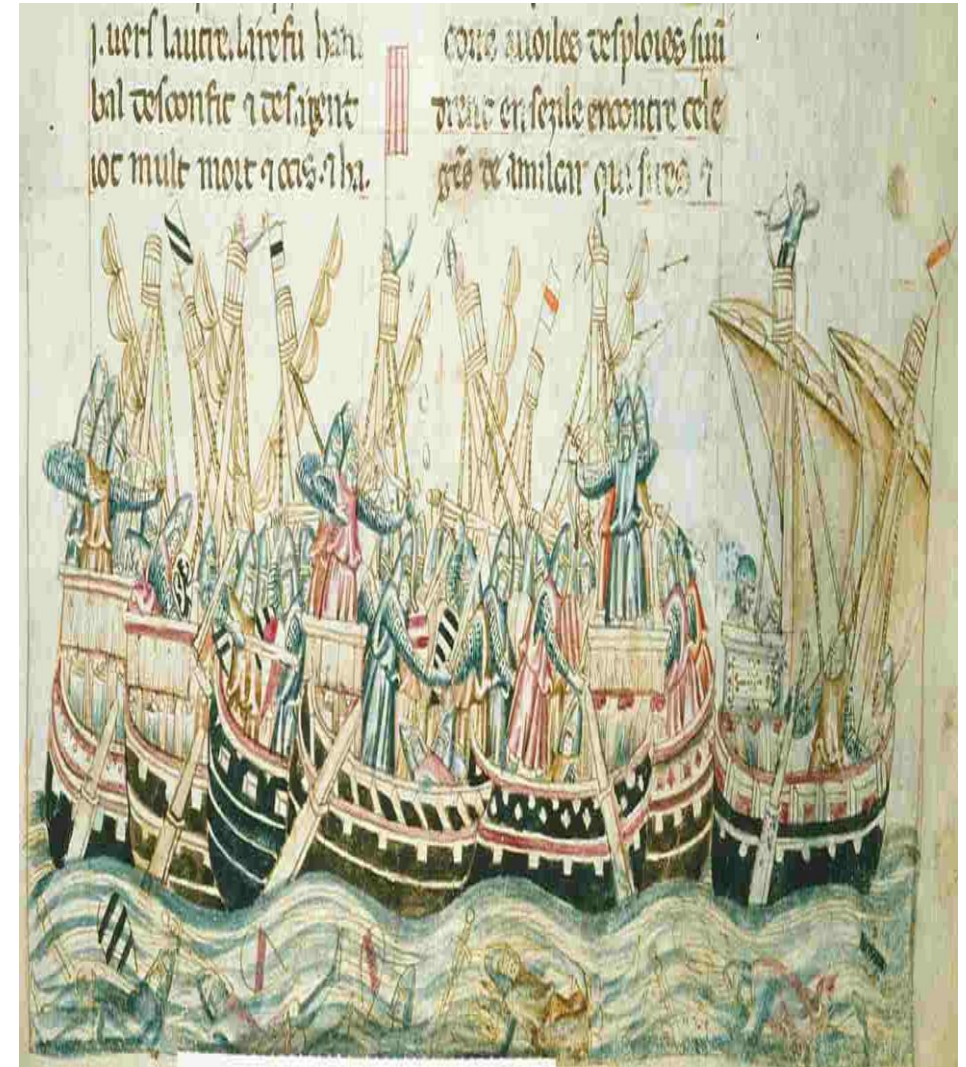 j. uers lautre. la refu han
bal desconfit ⁊ desa gent
iot mult mort ⁊ ocis. ⁊ ha.
uoiles desploies sen
en sezile encontre cele
de amilcar qui